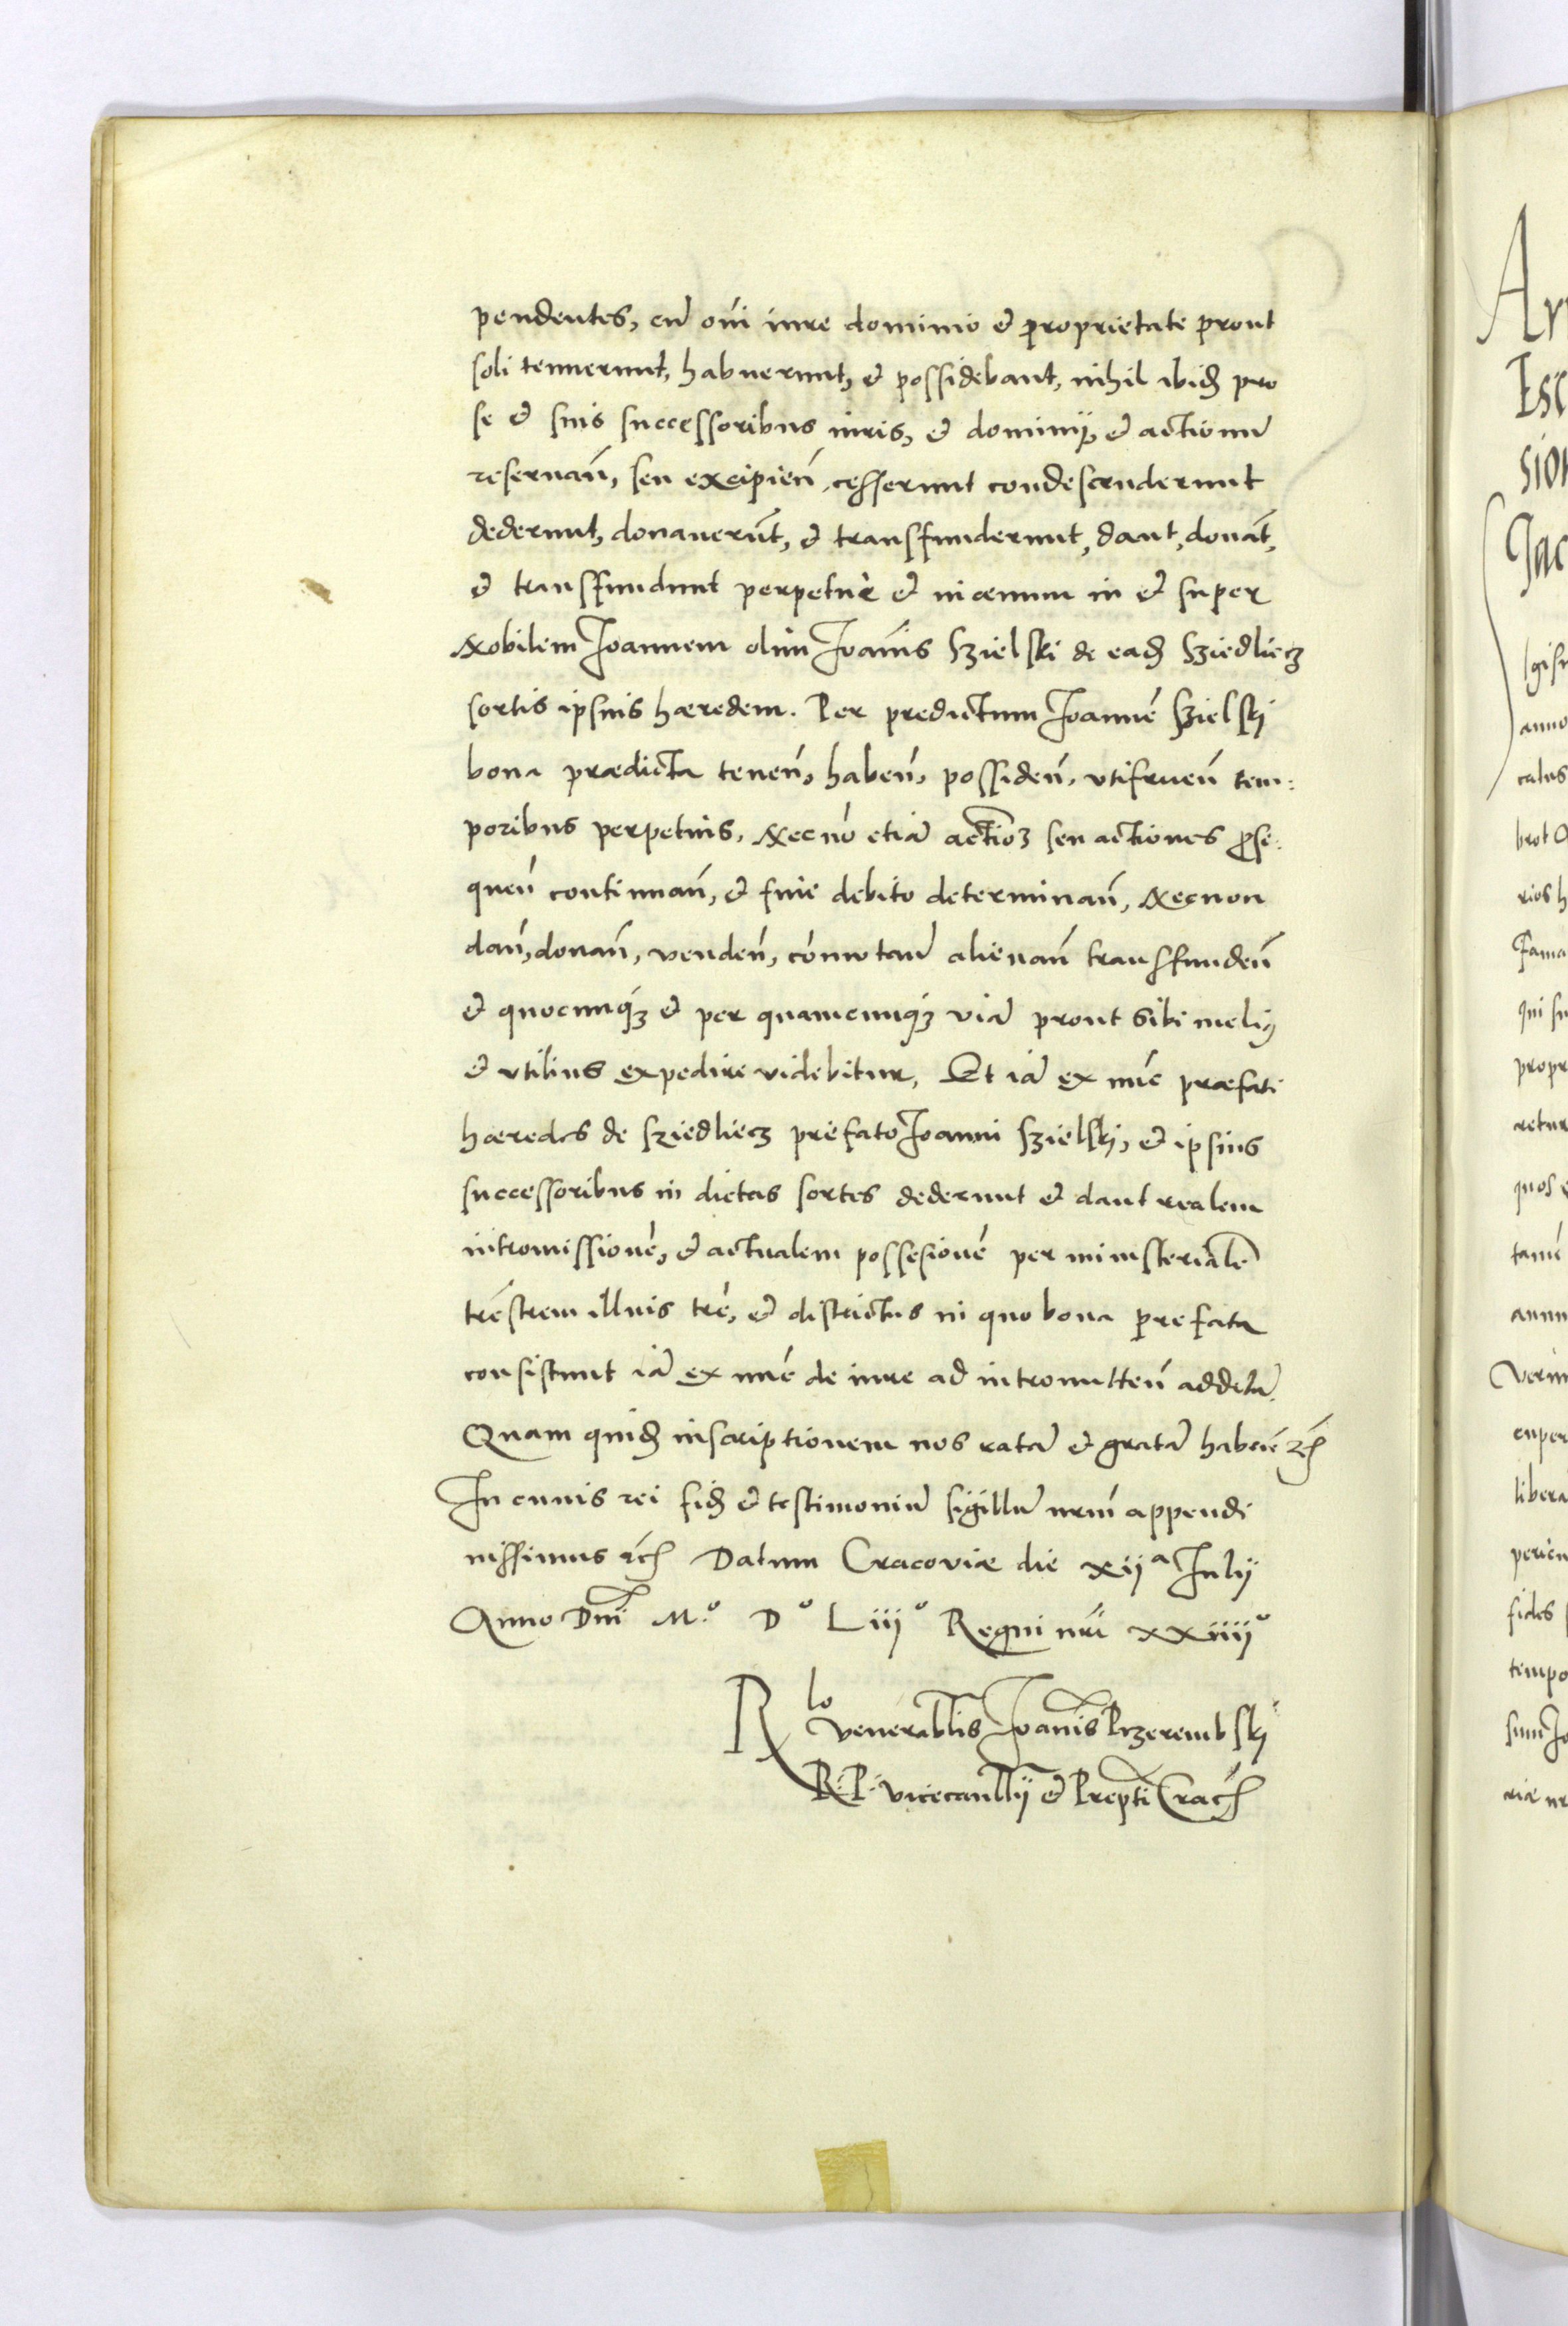 pendentes, cū oĩ iure dominio et proprietate prout
soli tenuerunt, habuerunt, et possidebant, nihil ibidē pro
se et suis successoribus iuris, et dominij, et actionū
reseruañ, seu excipieñ, cesserunt condescenderunt
dederunt, donauerūt, et transfunderunt, dant, donāt,
et transfundunt perpetuè et in æuum in et super
Nobilem Ioannem olim Ioañis Szielski de eadē Sziedliecz
sortis ipsius hæredem. Per predictum Ioannē Szielskj
bona prædicta teneñ, habeñ, possideñ, vtifrueñ tem:
poribus perpetuis, Necnō etiā actioē seu actiones ꝓse:
queñ continuañ, et fine debito determinañ, Necnon
dañ, donañ, vendeñ, cōmutañ alienañ transfundeñ
et quocunq́ꝫ et per quamcunq́ꝫ viā prout sibi meliꝰ
et vtilius expedire videbitur, Et iā ex nūc præfati
hæredes de Sziedliecz præfato Ioanni Szielskj, et ipsius
successoribus in dictas sortes dederunt et dant realem
intromissionē, et actualem possesionē per ministerialē
trēstrem illius trē, et districtus in quo bona prefata
consistunt iā ex nūc de iure ad intromitteñ additū.
Quam quidē inscriptionem nos ratā et gratā habeñ etc̃
In cuius rei fidē et testimoniū sigillū nrũm appendi
iussimus etc̃ Datum Cracoviæ die xijᵃ Iulij
Anno Dñi M.º Dº Liijº Regni nr̃i xxiiijº
Rlo venerablis Ioañis Przerembskj
R: P: vicecancllij et Prepti Crac̃